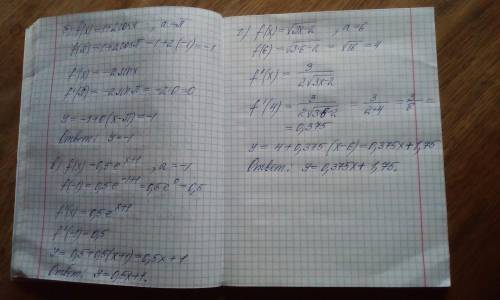 б) f(x)=1+2cosx, a=π
f(π)=1+2cosπ=1+2(-1)=-1
f'(x)=-2sinx
f'(π)=-2sinπ=-2·0=0
y=-1+0(x-π)=-1
Ответ: y=-1
в) f(x)=0,5·e^(x+1), a=-1
f(-1)=0,5e^(-1+1)=0,5e^0=0,5
f'(x)=0,5e^(x+1)
f'(-1)=0,5
y=0,5+0,5(x+1)=0,5x+1
Ответ: y=0,5x+1.
г) f(x)=√3x-2, a=6
f(6)=√3·6-2=√16=4
f'(x)=3/(2√3x-2)
f'(4)=3/(2√3·6-2)=3/(2·4)=3/8=
=0,375
y=4+0,375(x-6)=0,375x+1,75
Ответ: y=0,375x+1,75.